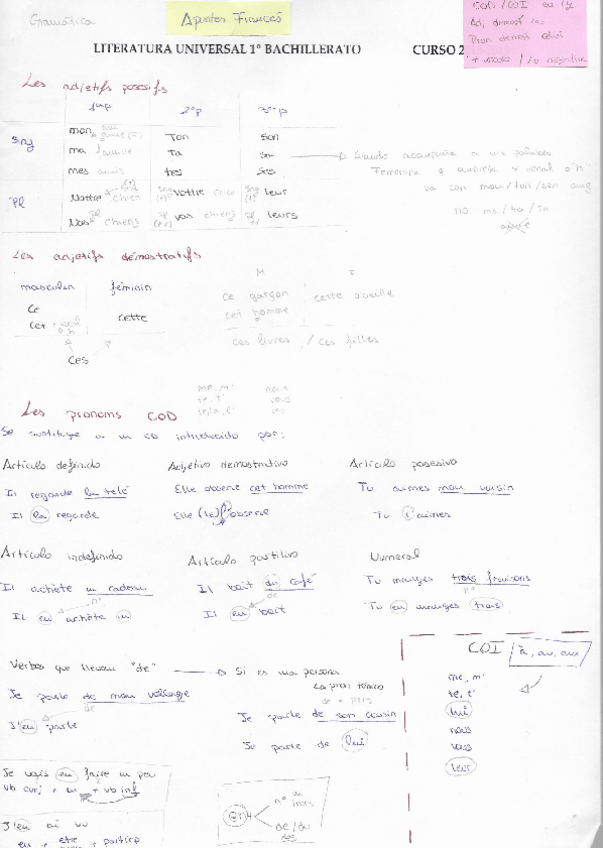 Gramática
Apuntes Francés
COD / COI en / y
Adj. demost
Pron demost
LITERATURA UNIVERSAL 1º BACHILLERATO CURSO 2
Les adjetifs posesifs
1ªp 2ªp 3ª p
Sing
mon Ton Son
ma ta sa
mes tes ses
Pl
Nottre chien vottre chien leur
Nos chiens vos chiens leurs
Femenina q empieza x vocal o h
va con mon/ton/son
no ma/ta/sa
Les adjetifs démostratifs
masculin féminin
M F
Ce
Cet cette
Ces
ce garçon cette abeille
cet homme
ces livres / ces filles
Les pronoms COD
me, m' nous
te, t' vous
le, la, l' les
Se sustituye a un CD introducido por:
Artículo definido Adjetivo demostrativo Artículo posesivo
Il regarde la telé Elle observe cet homme Tu aimes mon voisin
Il la regarde Elle (le) l'observe Tu l'aimes
Artículo indefinido Artículo partitivo Numeral
Il achète un cadeau Il boit du café Tu manges trois
nº de nº
Il en achète un Il en boit Tu en manges trois
Verbos que llevan "de" → Si es una persona
pron tónico
de + pers
Je parle de mon
de
J'en parle
Je parle de son cousin
Je parle de lui
COI à, au, aux
me, m'
te, t'
lui
nous
vous
leur
Je vais en faire un peu
vb conj + en + vb inf
J'en ai vu
en + être + particip
en
nº un
trois
de/du
des